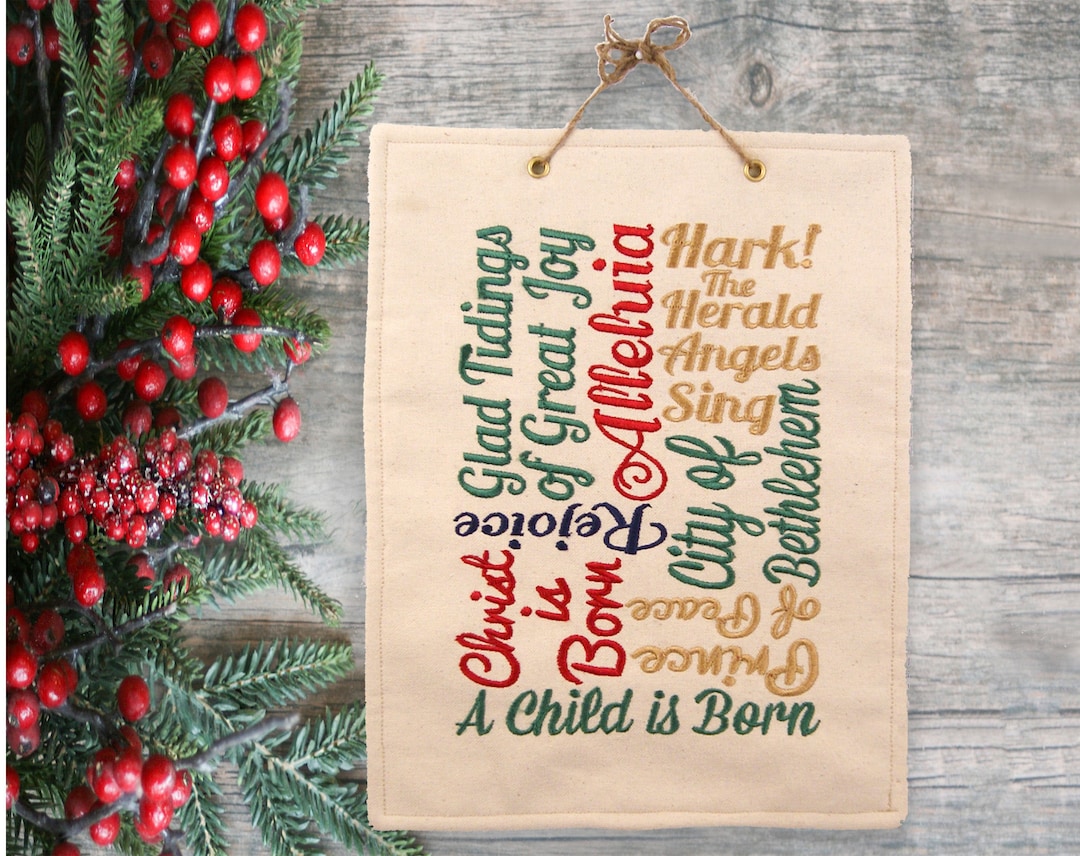 Glad Tidings
of Great Joy
Alleluia
Hark!
The
Herald
Angels
Sing
Rejoice
City of
Bethlehem
Christ
is
Born
Prince
of Peace
A Child is Born